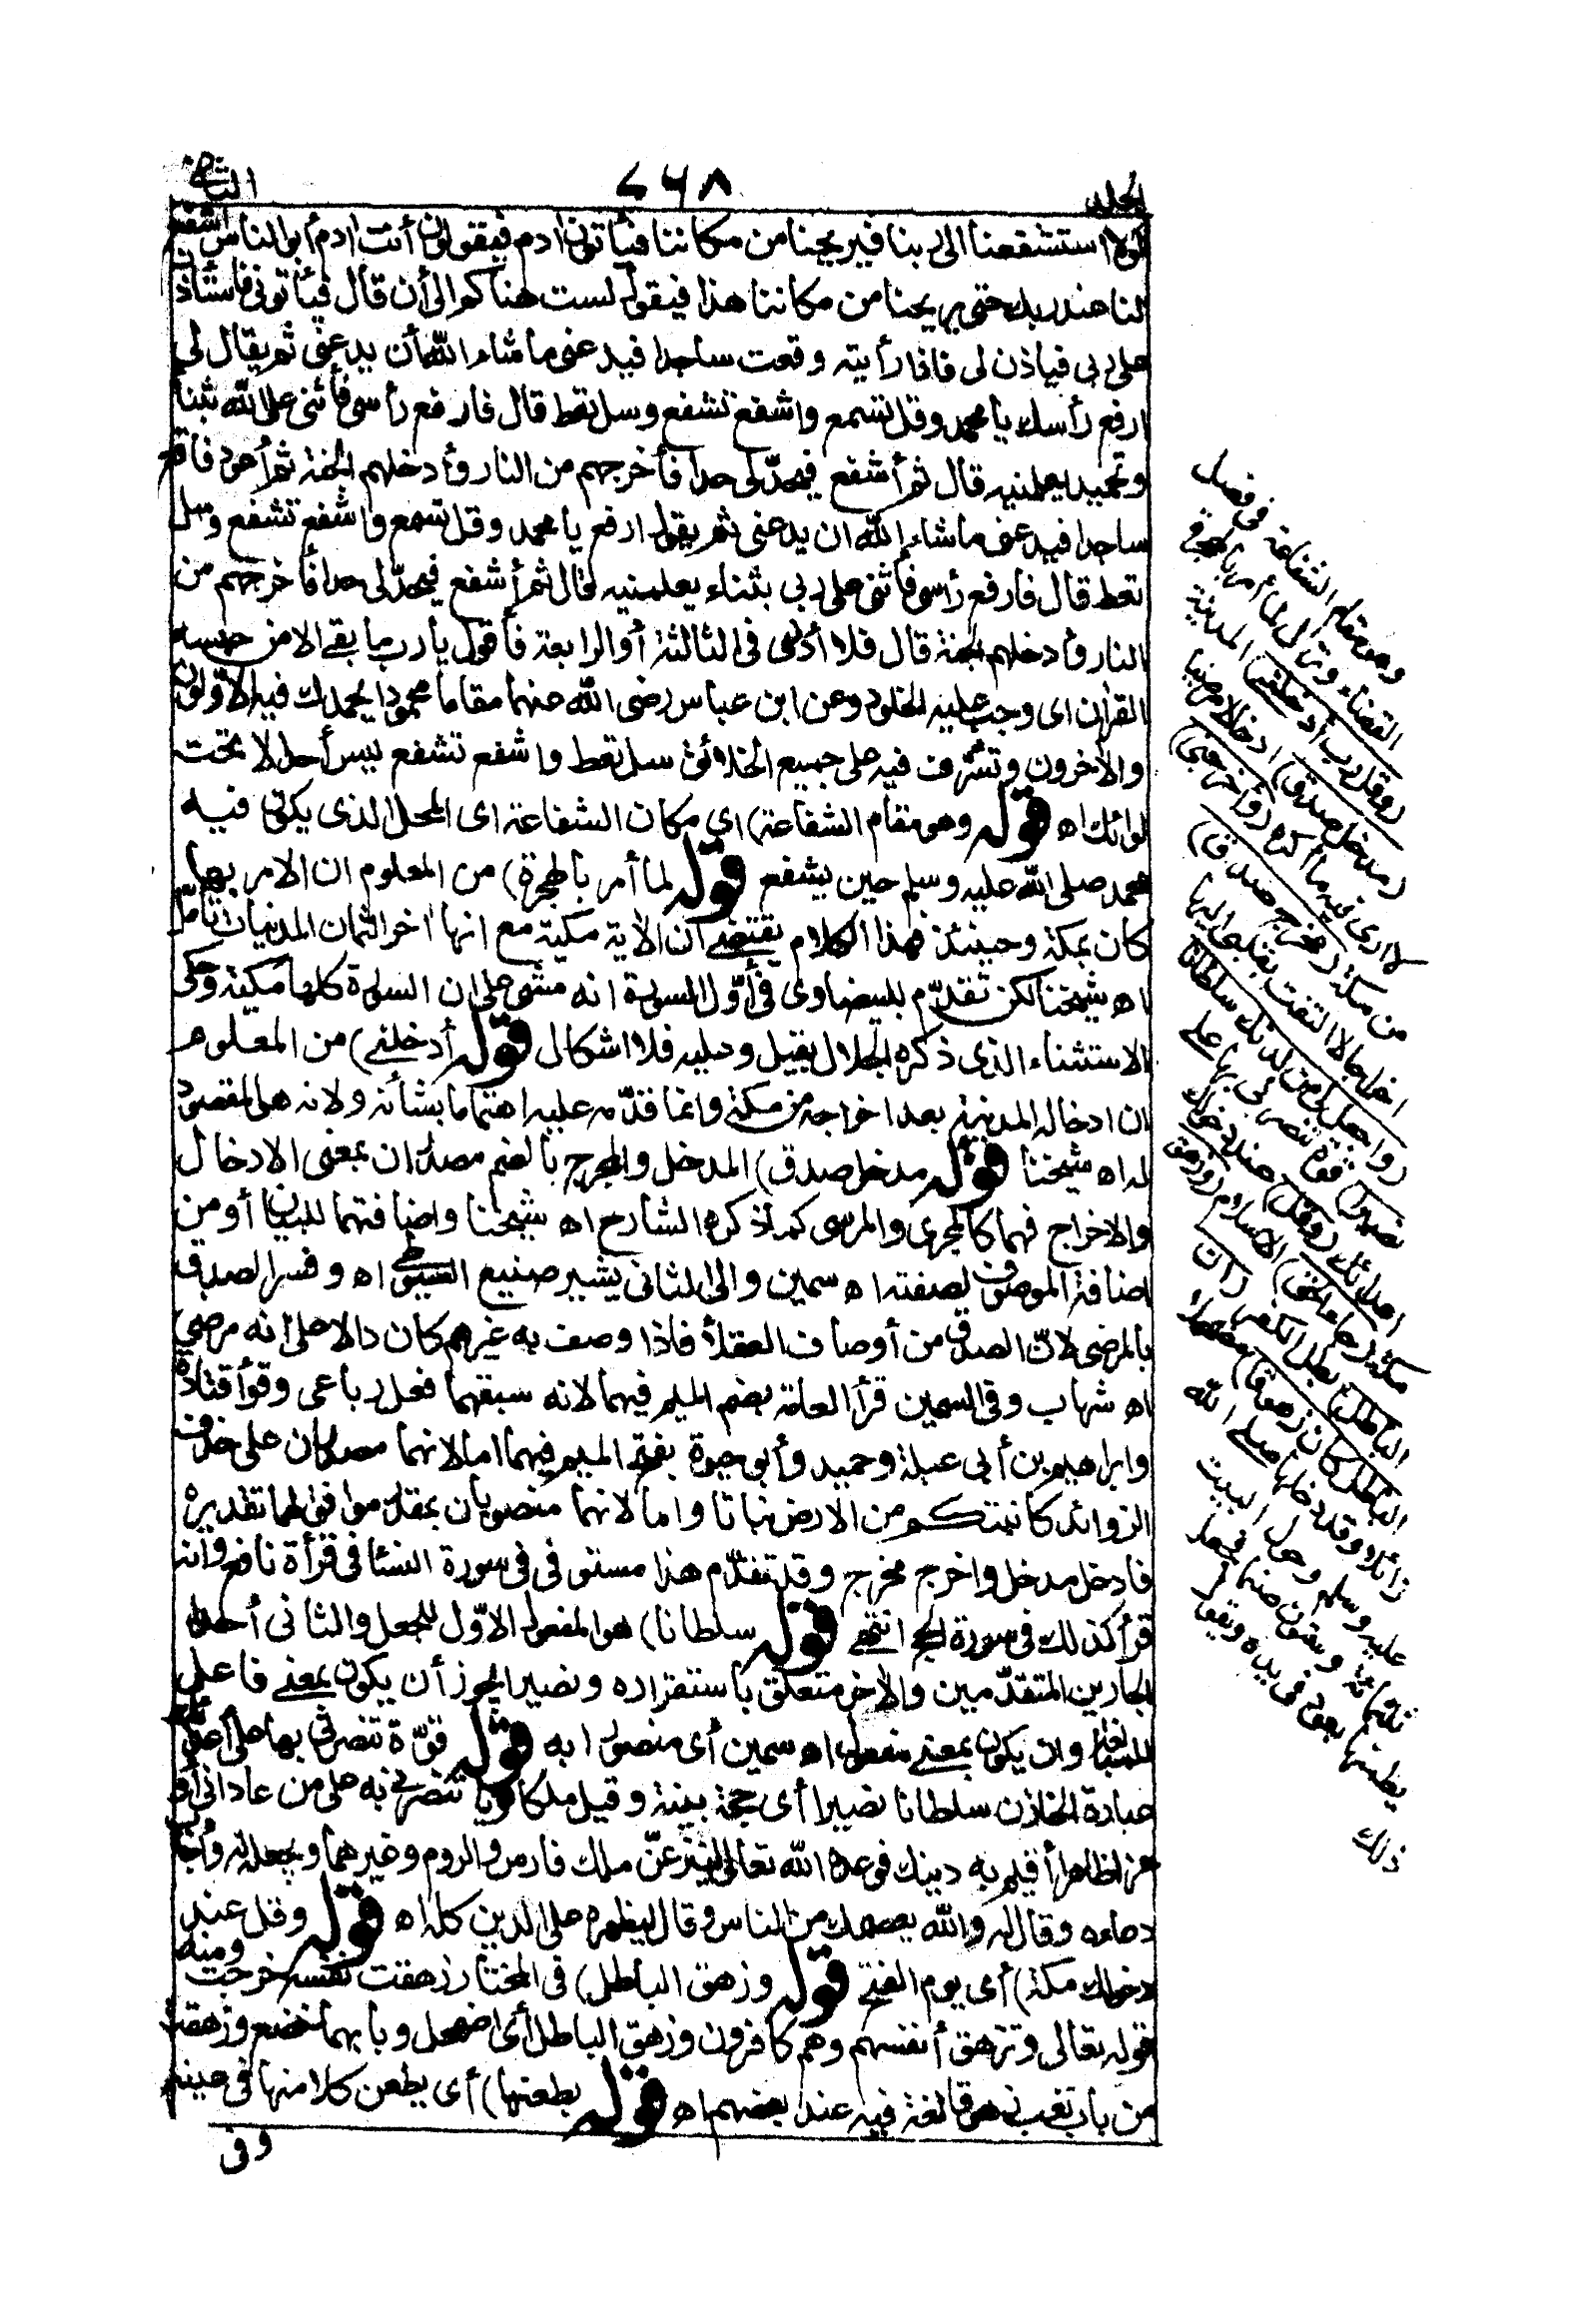 الجلد
٧٦٨
الثانى
لو استشفعنا الى ربنا فيريحنا من مكاننا فيأتون ادم فيقولون أنت ادم أبو الناس اشفع
لنا عند ربك حتى يريحنا من مكاننا هذا فيقول لست هناكم الى أن قال فيأتونى فاستأذن
على ربى فياذن لى فاذا رأيته وقعت ساجدا فيدعنى ما شاء الله أن يدعنى ثم يقال لى
ارفع رأسك يا محمد وقل تسمع واشفع تشفع وسل تعط قال فارفع رأسى فأثنى على الله بثناء
وتحميد يعلمنيه قال ثم أشفع فيحدّ لى حدا فأخرجهم من النار وأدخلهم الجنة ثم أعود فأقع
ساجدا فيدعنى ما شاء الله ان يدعنى ثم يقول ارفع يا محمد وقل تسمع واشفع تشفع وسل
تعط قال فارفع رأسى فأثنى على ربى بثناء يعلمنيه قال ثم أشفع فيحدّ لى حدا فأخرجهم من
النار وأدخلهم الجنة قال فلا أدرى فى الثالثة أو الرابعة فأقول يا رب ما بقى الا من حبسه
القرآن اى وجب عليه الخلود وعن ابن عباس رضى الله عنهما مقاما محمودا يحمدك فيه الأولون
والآخرون وتشرف فيه على جميع الخلائق سل تعط واشفع تشفع ليس أحد الا تحت
لوائك اه قوله وهو مقام الشفاعة) اى مكان الشفاعة اى المحل الذى يكون فيه
محمد صلى الله عليه وسلم حين يشفع قوله لما أمر بالهجرة) من المعلوم ان الامر بها
كان بمكة وحينئذ فهذا الكلام يقتضى أن الاية مكية مع انها اخر الثمان المدنيات تأمل
اه شيخنا لكن تقدّم للبيضاوى فى أوّل السورة انه مشى على ان السورة كلها مكية وحكى
الاستثناء الذى ذكره الجلال بقيل وعليه فلا اشكال قوله أدخلنى) من المعلوم
ان ادخاله المدينة بعد اخراجه من مكة وانما قدّمه عليه اهتماما بشأنه ولانه هو المقصود
له اه شيخنا قوله مدخل صدق) المدخل والمخرج بالضم مصدران بمعنى الادخال
والاخراج فهما كالمجرى والمرسى كما ذكره الشارح اه شيخنا واضافتهما للبيان أو من
اضافة الموصوف لصفته اه سمين والى الثانى يشير صنيع السيوطى اه وفسر الصدق
بالمرضى لانّ الصدق من أوصاف العقلاء فاذا وصف به غيرهم كان دالا على انه مرضى
اه شهاب وفى السمين قرأ العامة بضم الميم فيهما لانه سبقهما فعل رباعى وقرأ قتادة
وابراهيم بن أبى عبلة وحميد وأبو حيوة بفتح الميم فيهما اما لانهما مصدران على حذف
الزوائد كانبتكم من الارض نباتا واما لانهما منصوبان بمقدّر موافق لهما تقديره
فادخل مدخل واخرج مخرج وقد تقدّم هذا مستوفى فى سورة النساء فى قرأة نافع وانه
قرأ كذلك فى سورة الحج انتهى قوله سلطانا) هو المفعول الاوّل للجعل والثانى أحد
الجارين المتقدّمين والآخر متعلق باستقراره ونصيرا يجوز أن يكون بمعنى فاعل
للمبالغة وان يكون بمعنى مفعول اه سمين أى منصورا به قوله قوّة تنصرنى بها على أعدائك
عبارة الخازن سلطانا نصيرا أى حجة بينة وقيل ملكا قويا تنصرنى به على من عادانى أو
عزا ظاهرا أقيم به دينك فوعده الله تعالى لينزعنّ ملك فارس والروم وغيرهما ويجعله له وأجاب
دعاءه وقال له والله يعصمك من الناس وقال ليظهره على الدين كله اه قوله وقل عند
دخولك مكة) أى يوم الفتح قوله وزهق الباطل) فى المختار زهقت نفسه خرجت ومنه
قوله تعالى وتزهق أنفسهم وهم كافرون وزهق الباطل أى اضمحل وبابهما خضع وزهقت
من باب تعب زهوقا لغة فيه عند بعضهم اه قوله يطعنها) أى يطعن كلا منها فى عينه
وفى
وهو مقام الشفاعة فى فصل
القضاء ونزل لما أمر بالهجرة
(وقل رب أدخلنى) المدينة
(مدخل صدق) ادخالا مرضيا
لا أرى فيه ما أكره (وأخرجنى)
من مكة (مخرج صدق)
اخراجا لا التفت بقلبى اليها
(واجعل لى من لدنك سلطانا
نصيرا) قوة تنصرنى بها على
اعدائك (وقل) عند دخولك
مكة (جاء الحق) الاسلام (وزهق
الباطل) بطل الكفر (ان
الباطل كان زهوقا) مضمحلا
زائلا وقد دخلها صلى الله
عليه وسلم وحول البيت
ثلثمائة وستون صنما فجعل
يطعنها بعود فى يده ويقول
ذلك